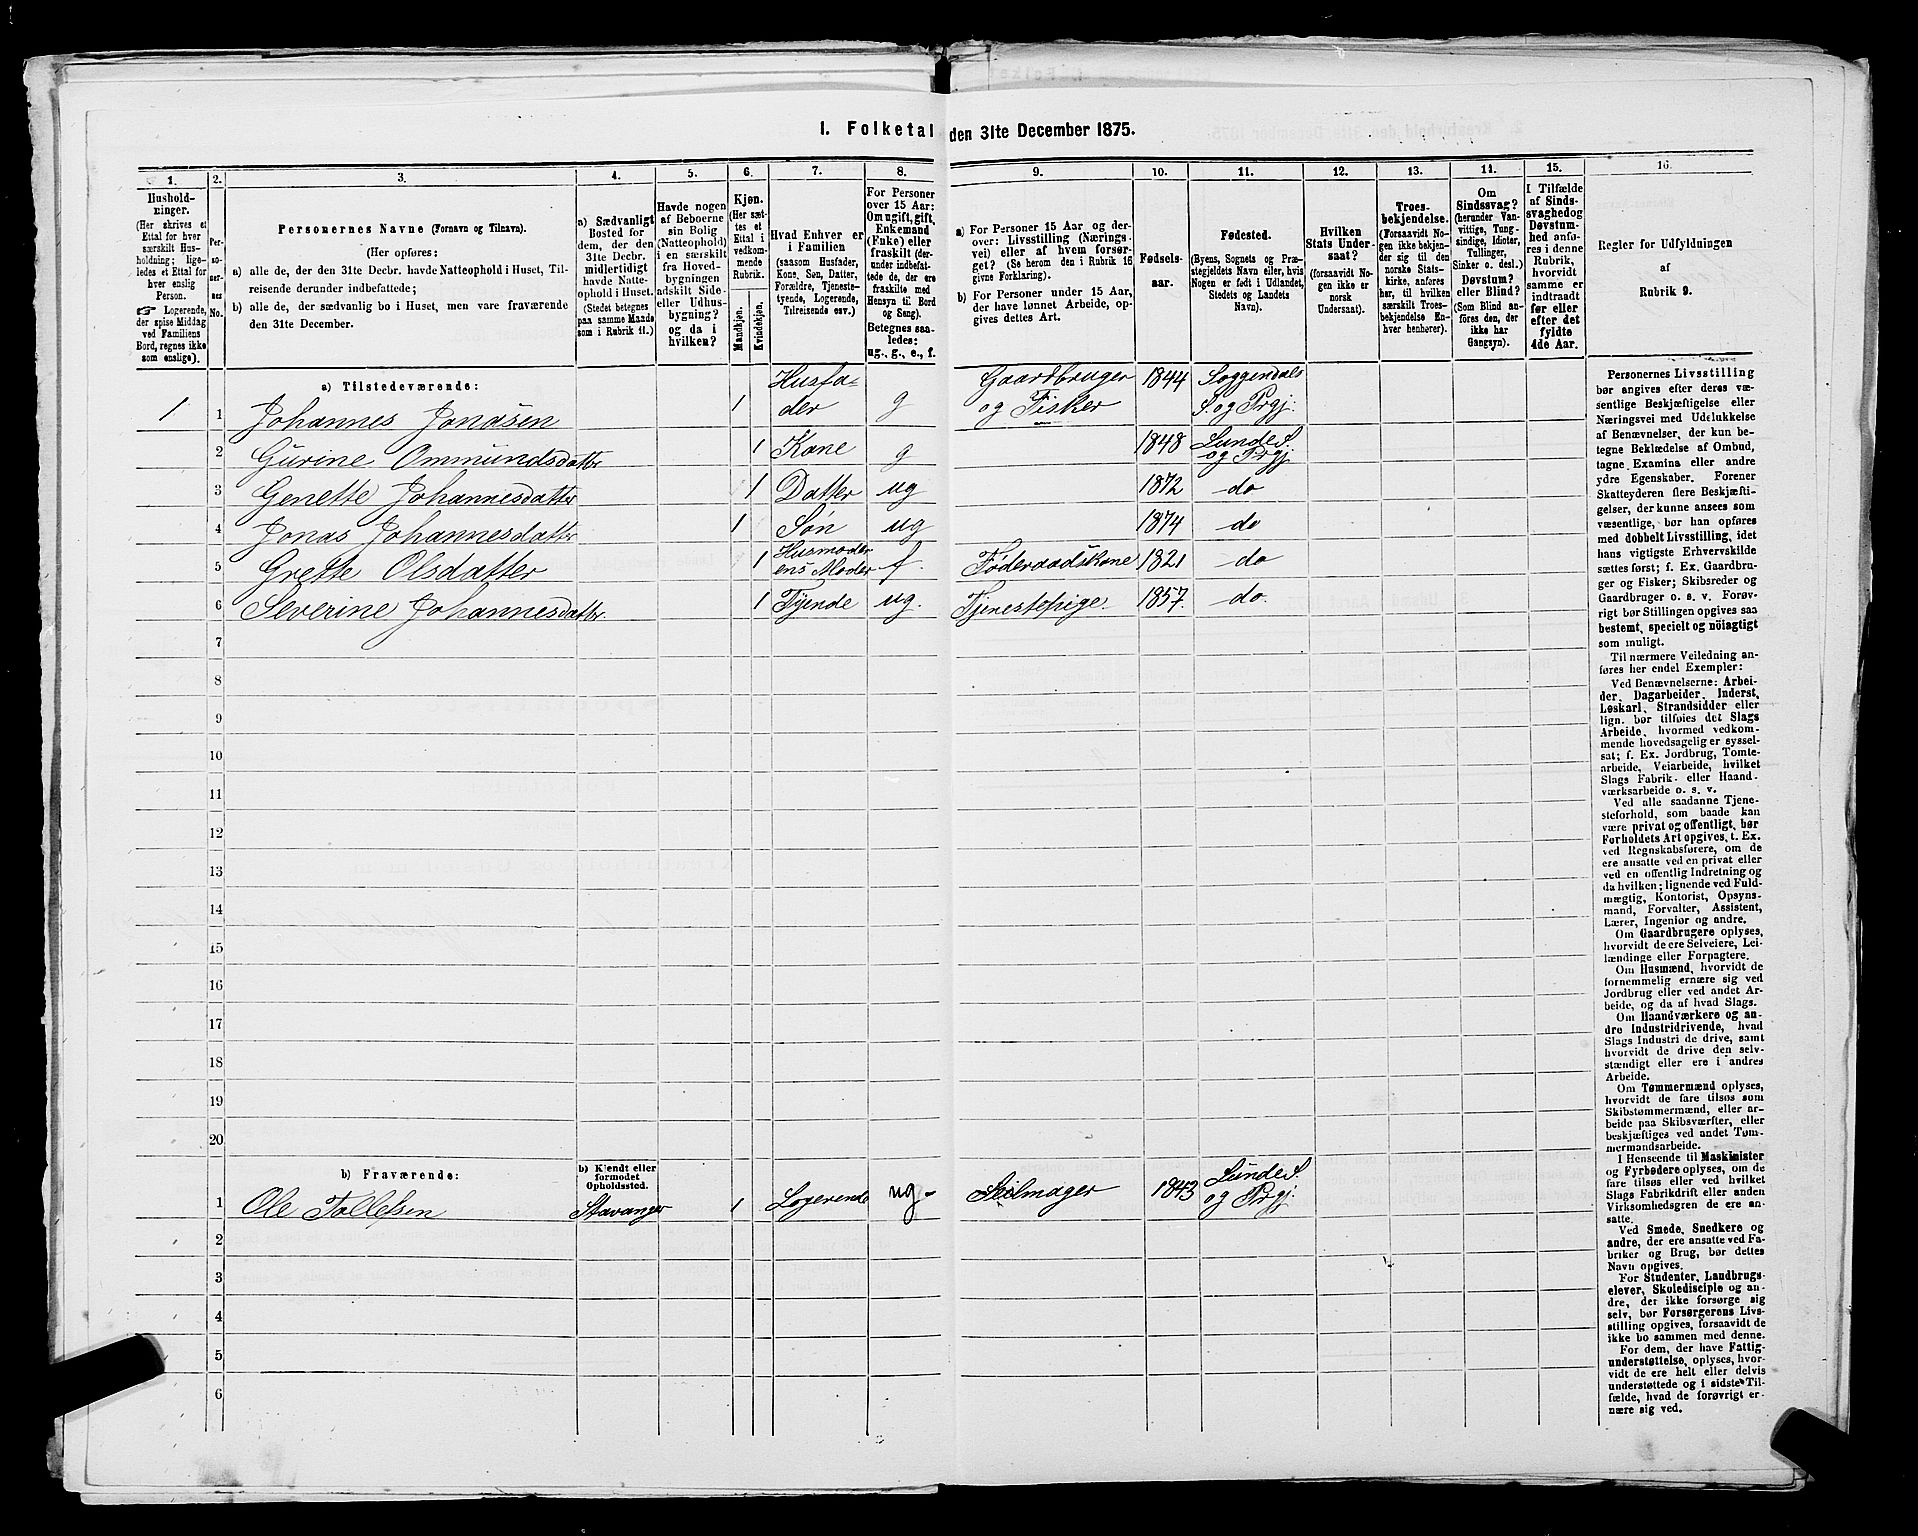 1. Folketal den 31te December 1875.
1.
2.
3.
4.
5.
6.
7.
8.
9.
10.
11.
12.
13.
14.
15.
16.
Hushold-
ninger.
(Her skrives et
Ettal for hver
særskilt Hus-
holdning; lige-
ledes et Ettal for
hver enslig
Person.
☞ Logerende,
der spise Middag
ved Familiens
Bord, regnes ikke
som enslige).
Per-
soner-
nes
No.
Personernes Navne (Fornavn og Tilnavn).
(Her opføres:
a) alle de, der den 31te Decbr. havde Natteophold i Huset, Til-
reisende derunder indbefattede;
b) alle de, der sædvanlig bo i Huset, men vare fraværende
den 31te December.
a) Sædvanligt
Bosted for
dem, der den
31te Decbr.
midlertidigt
havde Natte-
ophold i Huset.
(Stedet betegnes
paa samme Maade
som i Rubrik 11.)
Havde nogen
af Beboerne
sin Bolig
(Natteophold)
i en særskilt
fra Hoved-
bygningen
adskilt Side-
eller Udhus-
bygning?
og da i
hvilken?
Kjøn.
(Her sæt-
tes et
Ettal i
vedkom-
mende
Rubrik.
Mandkjøn.
Kvindekjøn.
Hvad Enhver er
i Familien
(saasom Husfader,
Kone, Søn, Datter,
Forældre, Tjeneste-
tyende, Logerende,
Tilreisende osv.)
For Personer
over 15 Aar:
Om ugift, gift,
Enkemand
(Enke) eller
fraskilt (der-
under indbefat-
tede de, der ere
fraskilte med
Hensyn til Bord
og Seng).
Betegnes saa-
ledes:
ug., g., e., f.
a) For Personer 15 Aar og der-
over: Livsstilling (Nærings-
vei) eller af hvem forsør-
get? (Se herom den i Rubrik 16
givne Forklaring).
b) For Personer under 15 Aar,
der have lønnet Arbeide, op-
gives dettes Art.
Fødsels-
aar.
Fødested.
(Byens, Sognets og Præ-
stegjeldets Navn eller, hvis
Nogen er født i Udlandet,
Stedets og Landets
Navn).
Hvilken
Stats Under-
saat?
(forsaavidt No-
gen ikke er
norsk
Undersaat).
Troes-
bekjendelse.
(Forsaavidt No-
gen ikke bekjen-
der sig til den
norske Stats-
kirke, anføres
her, til hvilken
særskilt Troes-
bekjendelse En-
hver henhører).
Om
Sindssvag?
(herunder Van-
vittige, Tung-
sindige, Idioter,
Tullinger,
Sinker o. desl.)
Døvstum?
eller Blind?
(Som Blind an-
føres den, der
ikke har
Gangsyn).
I Tilfælde
af Sinds-
svaghed og
Døvstum-
hed anfø-
res i denne
Rubrik,
hvorvidt
samme er
indtraadt
før eller
efter det
fyldte
4de Aar.
Regler for Udfyldningen
af
Rubrik 9.
a) Tilstedeværende:
1 1 Johannes Jonasen 1 Husfa-
der g Gaardbruger
og Fisker 1844 Soggendals
S. og Prgj.
2 Gurine Ommundsdatter 1 Kone g 1848 Lunde S.
og Prgj
3 Genette Johannesdatter 1 Datter ug 1872 do
4 Jonas Johannesdatter 1 Søn ug 1874 do
5 Grette Olsdatter 1 Husmoder
ens Moder f. Føderaadskone 1821 do
6 Severine Johannesdatter. 1 Tyende ug. Tjenestepige 1857. do.
7
8
9
10
11
12
13
14
15
16
17
18
19
20
b) Fraværende:
b) Kjendt eller
formodet
Opholdssted.
1 Ole Tollefsen Stavanger 1 Logerende ug- Seilmager 1843 Lunde S.
og Prgj.
2
3
4
5
6
Personernes Livsstilling
bør angives efter deres væ-
sentlige Beskjæftigelse eller
Næringsvei med Udelukkelse
af Benævnelser, der kun be-
tegne Beklædelse af Ombud,
tagne Examina eller andre
ydre Egenskaber. Forener
Skatteyderen flere Beskjæfti-
gelser, der kunne ansees som
væsentlige, bør han opføres
med dobbelt Livsstilling, idet
hans vigtigste Erhvervskilde
sættes først; f. Ex. Gaardbru-
ger og Fisker; Skibsreder og
Gaardbruger o. s. v. Forøv-
rigt bør Stillingen opgives saa
bestemt, specielt og nöiagtigt
som muligt.
Til nærmere Veiledning an-
føres her endel Exempler:
Ved Benævnelserne: Arbei-
der, Dagarbeider, Inderst,
Løskarl, Strandsidder eller
lign. bør tilføies det Slags
Arbeide, hvormed vedkom-
mende hovedsagelig er syssel-
sat; f. Ex. Jordbrug, Tomte-
arbeide, Veiarbeide, hvilket
Slags Fabrik- eller Haand-
værksarbeide o. s. v.
Ved alle saadanne Tjene-
steforhold, som baade kan
være privat og offentligt, bør
Forholdets Art opgives, t. Ex.
ved Regnskabsførere, om de
ere ansatte ved en privat eller
ved en offentlig Indretning og
da hvilken; lignende ved Fuld-
mægtig, Kontorist, Opsyns-
mand, Forvalter, Assistent,
Lærer, Ingeniør og andre.
Om Gaardbrugere oplyses,
hvorvidt de ere Selveiere, Lei-
lændinge eller Forpagtere.
Om Husmænd, hvorvidt de
fornemmelig ernære sig ved
Jordbrug eller ved andet Ar-
beide, og da af hvad Slags.
Om Haandværkere og an-
dre Industridrivende, hvad
Slags Industri de drive, samt
hvorvidt de drive den selv-
stændigt eller ere i andres
Arbeide.
Om Tømmermænd oplyses,
hvorvidt de fare tilsøs som
Skibstømmermænd, eller ar-
beide paa Skibsværfter, eller
beskjæftiges ved andet Tøm-
mermandsarbeide.
I Henseende til Maskinister
og Fyrbødere oplyses, om de
fare tilsøs eller ved hvilket
Slags Fabrikdrift eller anden
Virksomhedsgren de ere an-
satte.
Ved Smede, Snedkere og
andre, der ere ansatte ved Fa-
briker og Brug, bør dettes
Navn opgives.
For Studenter, Landbrugs-
elever, Skoledisciple og an-
dre, der ikke forsørge sig
selv, bør Forsørgerens Livs-
stilling opgives, forsaavidt de
ikke bo sammen med denne.
For dem, der have Fattig-
understøttelse, oplyses, hvor-
vidt de ere helt eller delvis
understøttede og i sidste Til-
fælde, hvad de forøvrigt er-
nære sig ved.